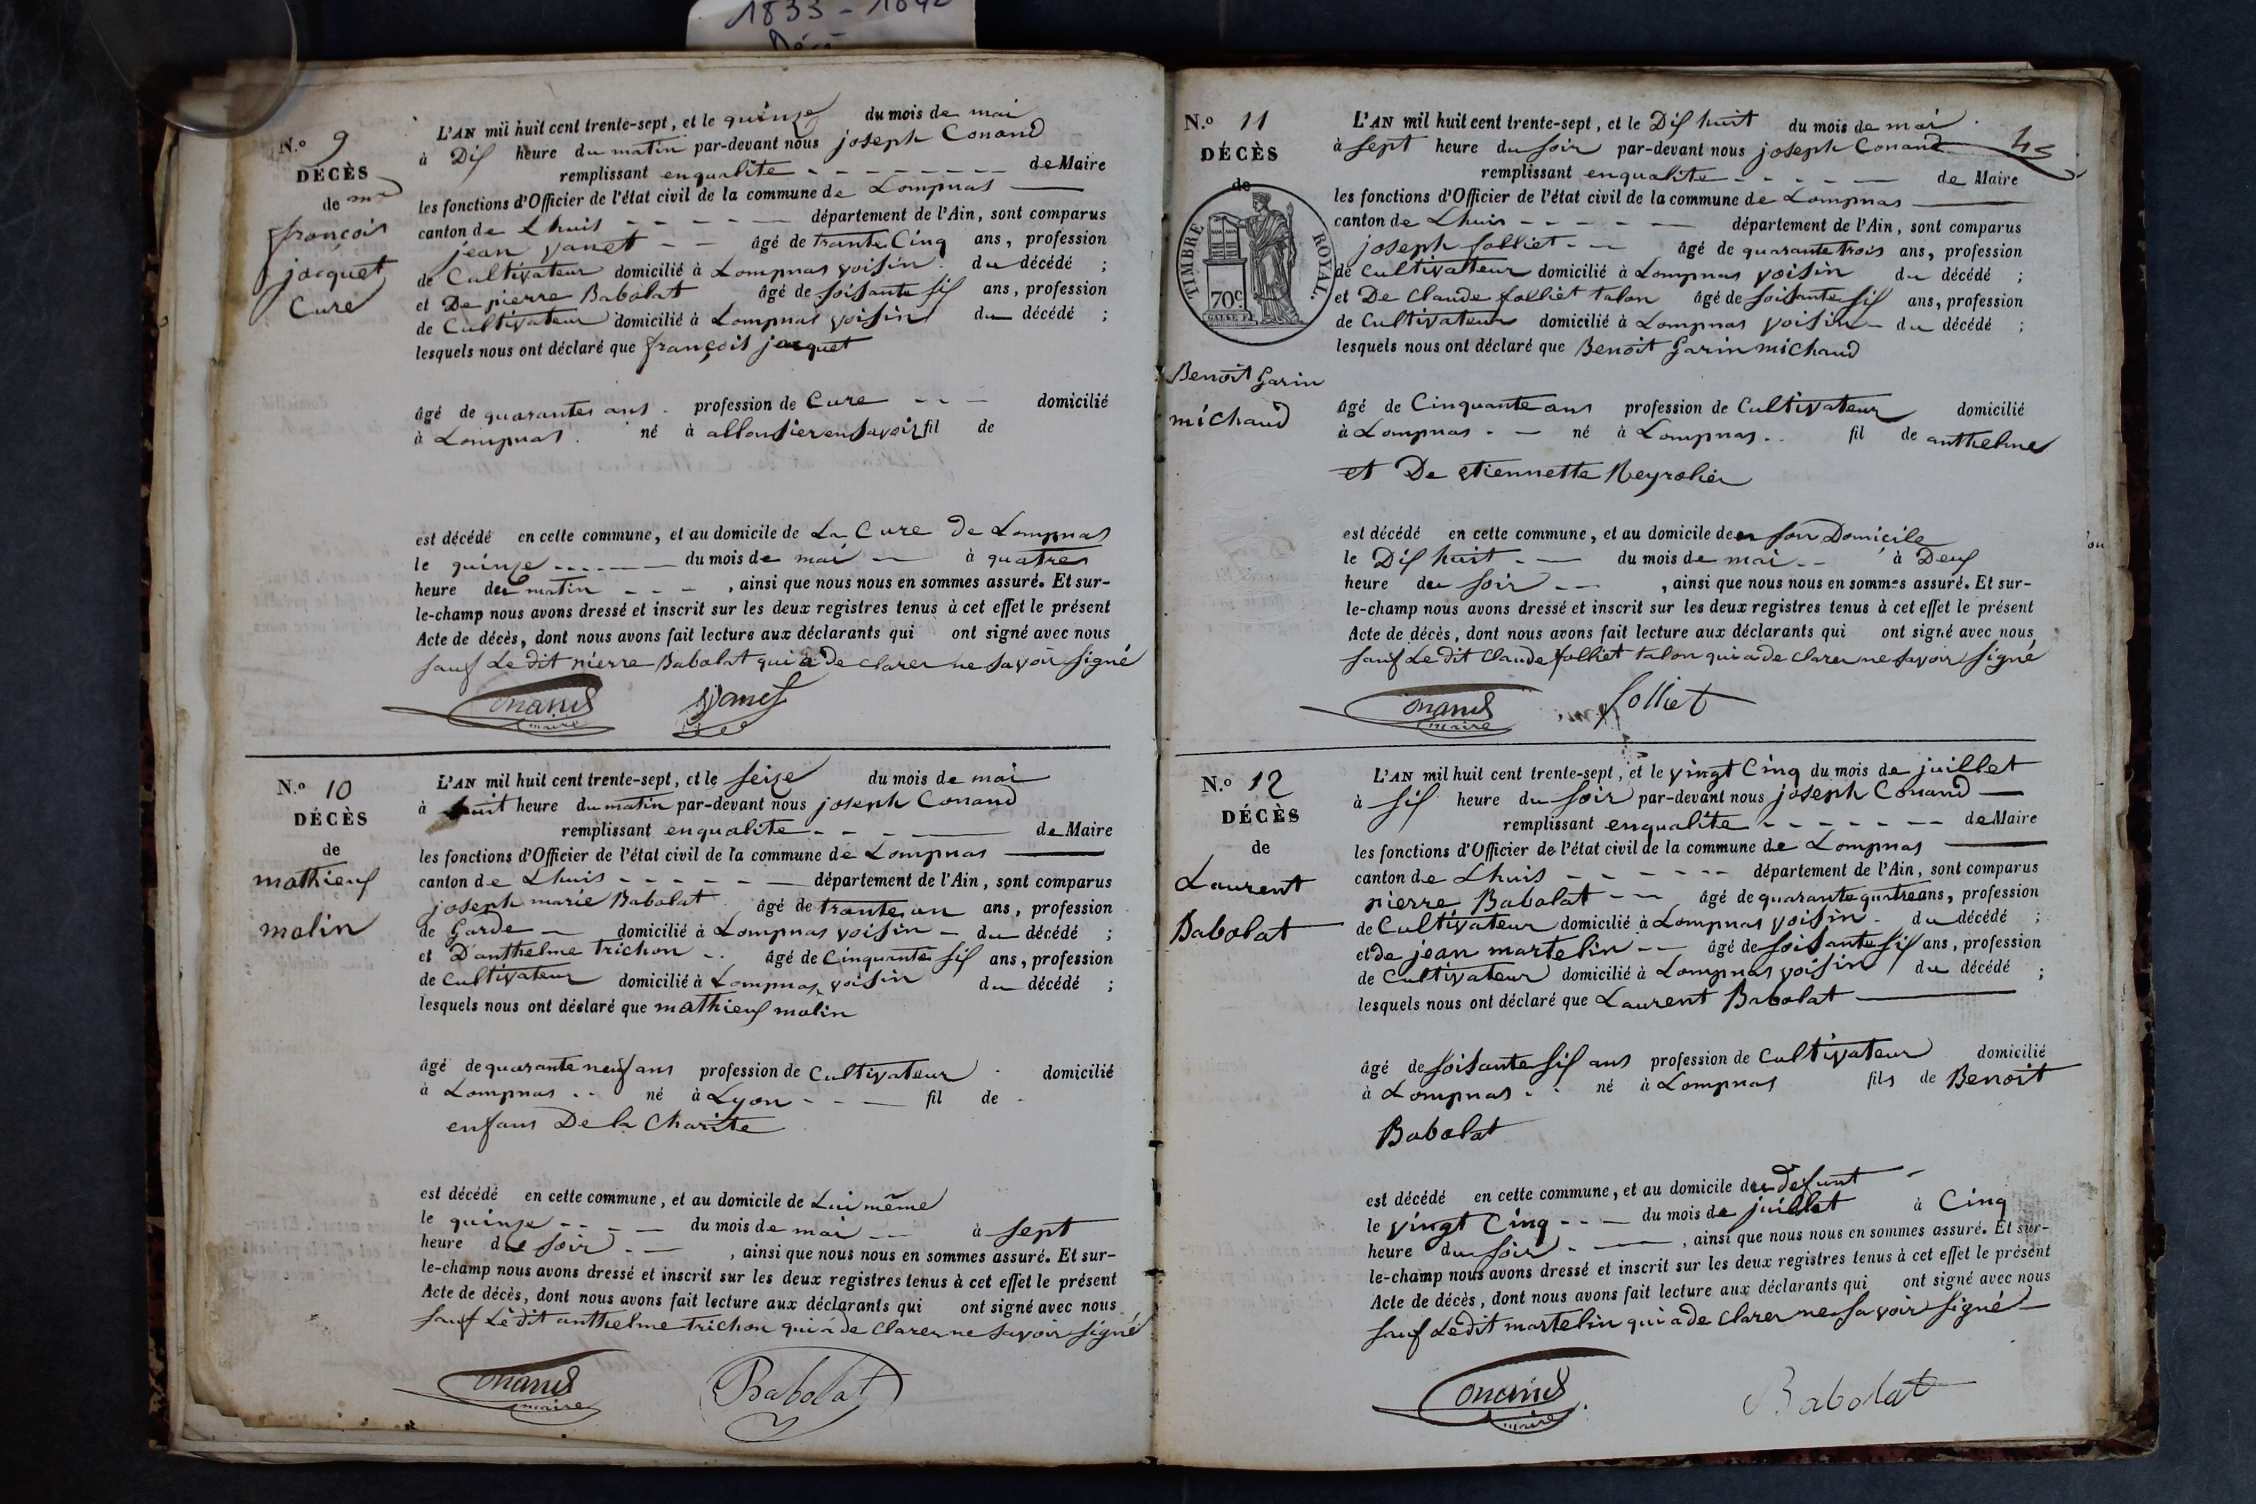 1833 - 1842
Décè
N.º 9
DÉCÈS
de mr
françois
jacquet
Cure
L'AN mil huit cent trente-sept, et le quinze du mois de mai
à Dis heure du matin par-devant nous joseph Conand
remplissant enqualite - - - - - - - - de Maire
les fonctions d'Officier de l'état civil de la commune de Lompnas
canton de Lhuis - - - - - département de l'Ain, sont comparus
jean yanet - - âgé de trante Cinq ans, profession
de Cultivateur domicilié à Lompnas voisin du décédé ;
et De pierre Babolat âgé de soisante sis ans, profession
de Cultivateur domicilié à Lompnas voisin du décédé ;
lesquels nous ont déclaré que françois jacquet
âgé de quarantes ans profession de Cure - - - domicilié
à Lompnas. né à fil de
est décédé en cette commune, et au domicile de La Cure De Lompnas
le quinze - - - - du mois de mai - à quatres
heure du matin - - - , ainsi que nous nous en sommes assuré. Et sur-
le-champ nous avons dressé et inscrit sur les deux registres tenus à cet effet le présent
Acte de décès, dont nous avons fait lecture aux déclarants qui ont signé avec nous
sauf Le dit pierre Babolat qui à de clarer ne savoir signé
Conand yanet
maire
N.º 10
DÉCÈS
de
mathieus
molin
L'AN mil huit cent trente-sept, et le seize du mois de mai
à huit heure du matin par-devant nous joseph Conand
remplissant enqualite - - - de Maire
les fonctions d'Officier de l'état civil de la commune de Lompnas
canton de Lhuis - - - - - - département de l'Ain, sont comparus
joseph marie Babolat âgé de trante un ans, profession
de Garde - domicilié à Lompnas voisin - du décédé ;
et D'anthelme trichon - - âgé de cinquantes sis ans, profession
de Cultivateur domicilié à Lompnas voisin du décédé ;
lesquels nous ont déclaré que mathieus molin
âgé de quarante neuf ans profession de Cultivateur domicilié
à Lompnas - - né à Lyon - - - fil de -
enfans De la Charite
est décédé en cette commune, et au domicile de Lui même
le quinze - - - - du mois de mai - - à sept
heure du soir - - , ainsi que nous nous en sommes assuré. Et sur-
le-champ nous avons dressé et inscrit sur les deux registres tenus à cet effet le présent
Acte de décès, dont nous avons fait lecture aux déclarants qui ont signé avec nous
sauf Le dit anthelme trichon qui à de clarer ne savoir signé
Conand Babolat
maire
N.º 11
DÉCÈS
de
TIMBRE ROYAL.
70c.
Benoit Garin
michaud
L'AN mil huit cent trente-sept, et le Dis huit du mois de mai
à sept heure du soir par-devant nous joseph Conand
remplissant enqualite - - - - - de Maire
les fonctions d'Officier de l'état civil de la commune de Lompnas
canton de Lhuis - - - - - département de l'Ain, sont comparus
joseph folliet - - âgé de quarante trois ans, profession
de Cultivateur domicilié à Lompnas voisin du décédé ;
et De Claude folliet talon âgé de soisante sis ans, profession
de Cultivateur domicilié à Lompnas voisin - du décédé ;
lesquels nous ont déclaré que Benoit Garin michaud
âgé de Cinquante ans profession de Cultivateur domicilié
à Lompnas - - né à Lompnas - - fil de anthelme
et De etiennette
est décédé en cette commune, et au domicile de son Domicile
le Dis huit - - du mois de mai - - à Deus
heure du soir - - , ainsi que nous nous en sommes assuré. Et sur-
le-champ nous avons dressé et inscrit sur les deux registres tenus à cet effet le présent
Acte de décès, dont nous avons fait lecture aux déclarants qui ont signé avec nous
sauf Le dit Claude folliet talon qui à de clarer ne savoir signé
Conand folliet
maire
N.º 12
DÉCÈS
de
Laurent
Babolat
L'AN mil huit cent trente-sept, et le vingt Cinq du mois de juillet
à sis heure du soir par-devant nous joseph Conand
remplissant enqualite - - - - - - - de Maire
les fonctions d'Officier de l'état civil de la commune de Lompnas
canton de Lhuis - - - - - - département de l'Ain, sont comparus
pierre Babolat - - âgé de quarante quatre ans, profession
de Cultivateur domicilié à Lompnas voisin - du décédé ;
et de jean martelin - - âgé de soisante sis ans, profession
de Cultivateur domicilié à Lompnas voisin du décédé ;
lesquels nous ont déclaré que Laurent Babolat
âgé de soisante sis ans profession de Cultivateur domicilié
à Lompnas - - né à Lompnas fils de Benoit
Babolat
est décédé en cette commune, et au domicile du defunt
le vingt Cinq - - - du mois de juillet à Cinq
heure du soir - , ainsi que nous nous en sommes assuré. Et sur-
le-champ nous avons dressé et inscrit sur les deux registres tenus à cet effet le présent
Acte de décès, dont nous avons fait lecture aux déclarants qui ont signé avec nous
sauf Le dit martelin qui à de clarer ne savoir signé
Conand Babolat
maire